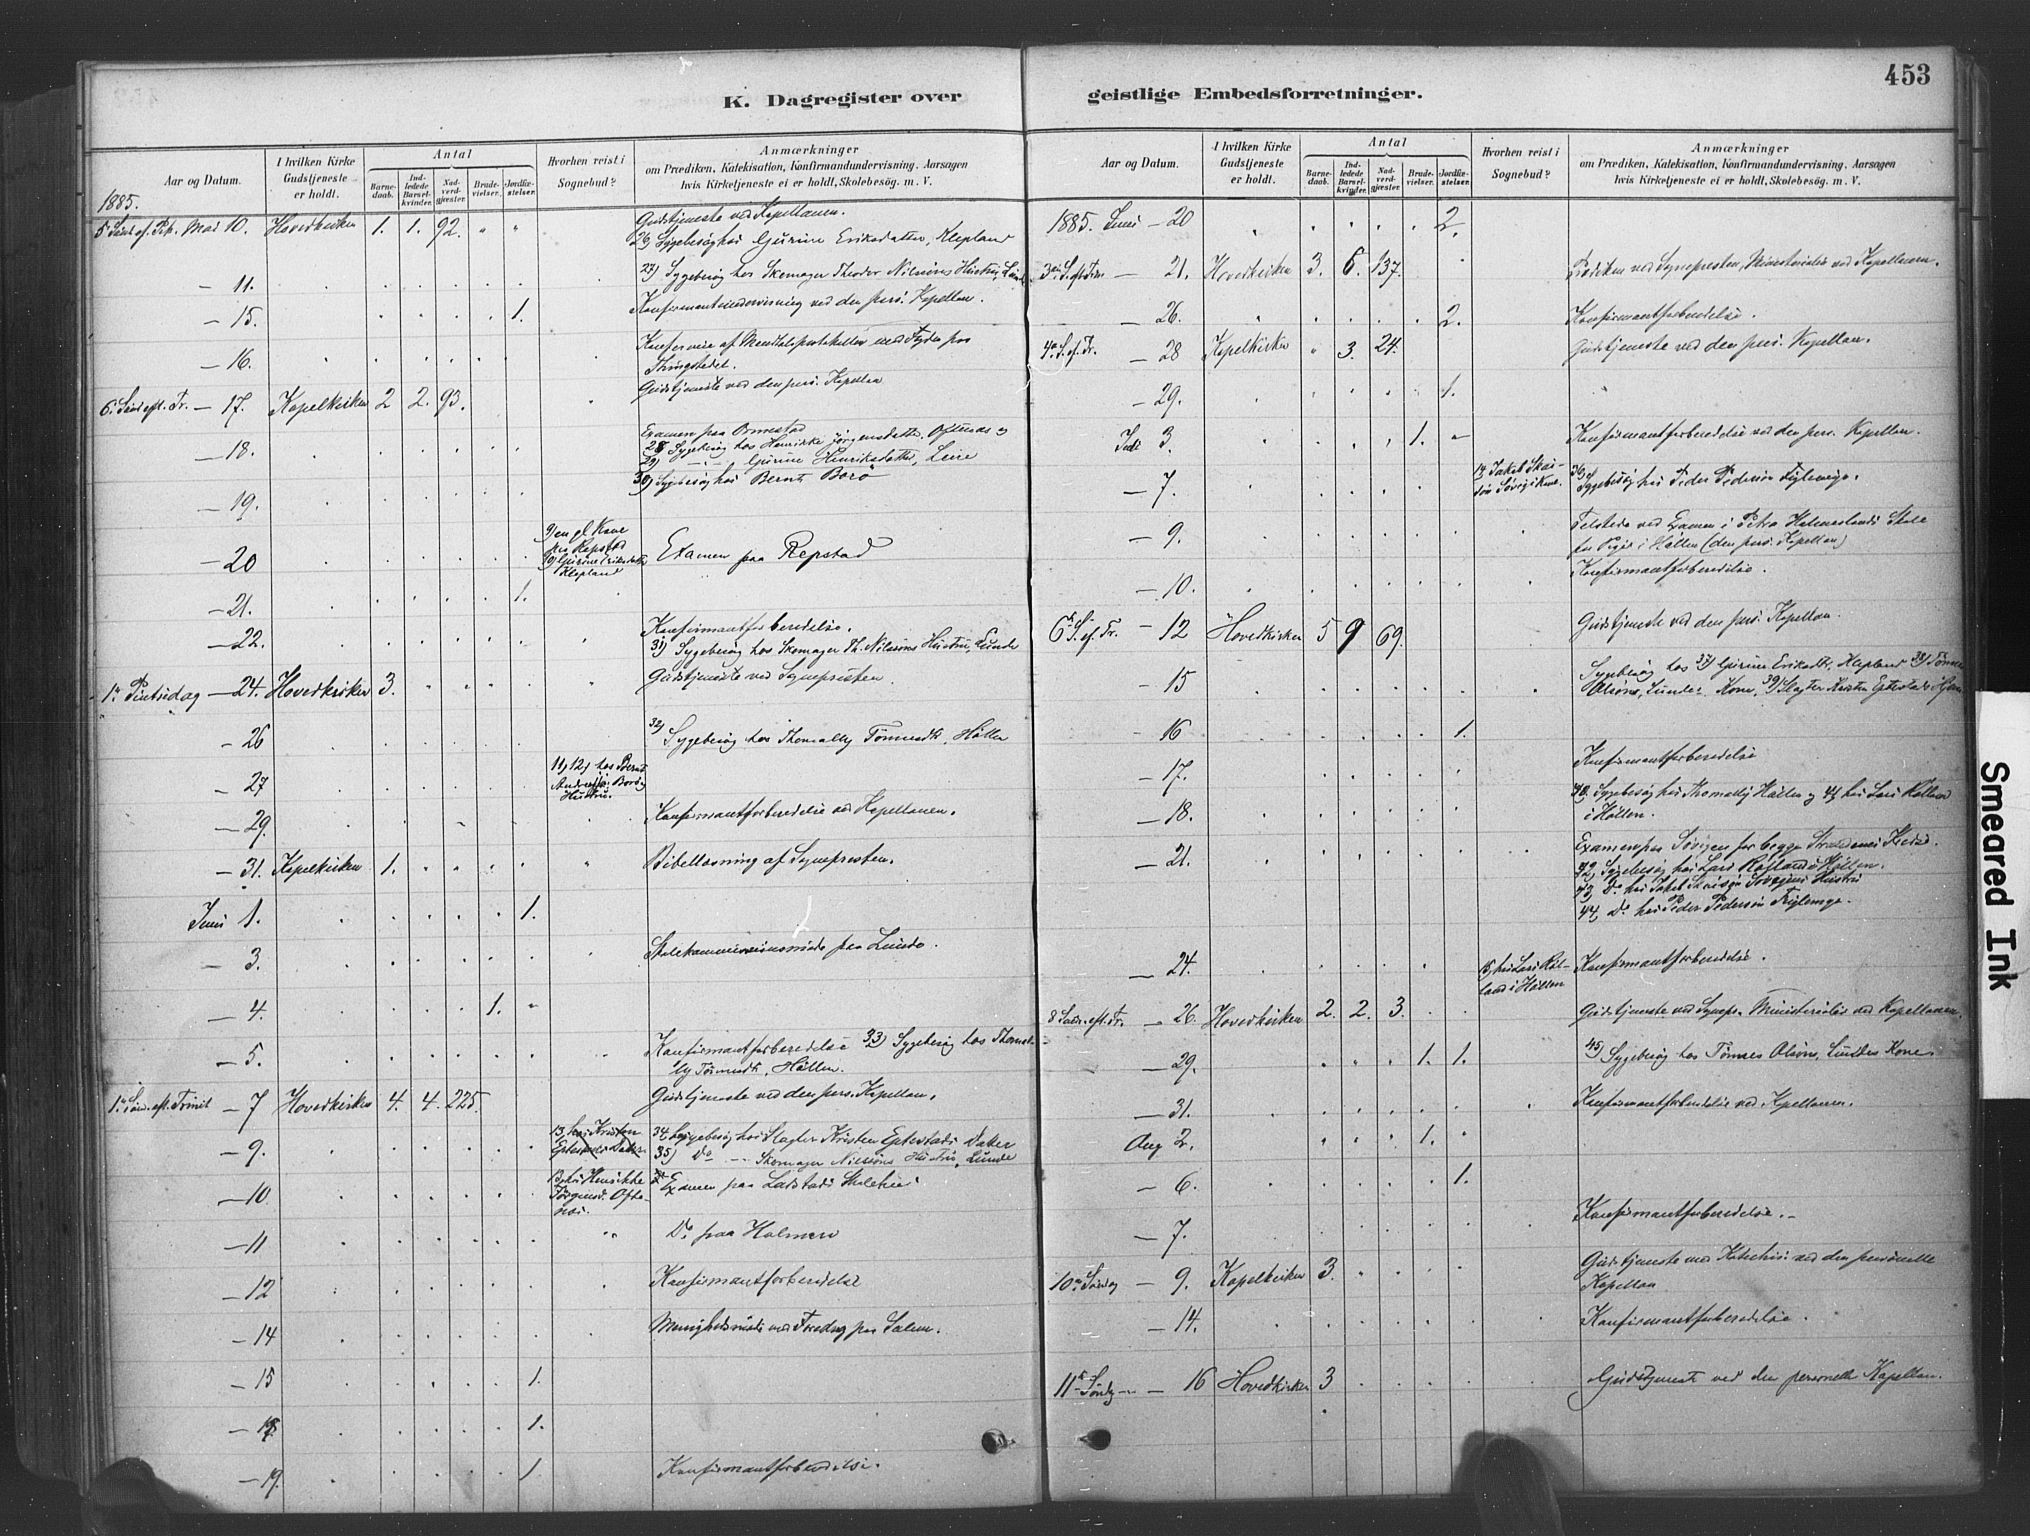 453
K. Dagregister over geistlige Embedsforretninger.
Aar og Datum.
I hvilken Kirke Gudstjeneste er holdt.
Antal
Barnedaab.
Indledede Barselkvinder.
Nadverdgjæster.
Brudevielser.
Jordfæstelser.
Hvorhen reist i Sognebud?
Anmærkninger
om Prædiken, Katekisation, Konfirmandundervisning, Aarsagen
hvis Kirketjeneste ei er holdt, Skolebesøg. m. V.
1885.
Mai 10. Hovedkirken 1. 1. 92. " " Gudstjeneste ved Kapellanen.
26) Sygebesøg hos Gurine Eriksdatter, Klepland
— 11. 27) Sygebesøg hos Skomager Theodor Nilsøns Hustru, Lunde
— 15. 1. Konfirmantundervisning ved den pers. Kapellan.
— 16.
Thingstedet.
— 17. Kapelkirken 2 2. 93. Gudstjeneste ved den pers. Kapellan
— 18. Examen paa Ormestad
28) Sygebesøg hos Henrikke Jørgensdatter, Oftenæs og
29) Gurine Henriksdatter, Leire
— 19. 30) Sygebesøg hos Bernt Borø
— 20 9) en gl. Kone paa Repstad
10) Gurine Eriksdatter Klepland
Examen paa Repstad
— 21. 1.
— 22. Konfirmantforberedelse.
31) Sygebesøg hos Skomager Th. Nilsøns Hustru, Lunde
1ste Pintsedag — 24. Hovedkirken 3. Gudstjeneste ved Sognepresten
— 26 32) Sygebesøg hos Thomally Tønnesdt., Høllen
— 27 11) 12) hos Bernt Borø Hustru.
— 29. Konfirmantforberedelse ved Kapellanen.
— 31. Kapelkirken 1. Bibellæsning af Sognepresten.
Juni 1. 1.
— 3. Skolekommissionsmøde paa Lunde.
— 4. 1. "
— 5. Konfirmantforberedelse 33) Sygebesøg hos Thomally Tønnesdt., Høllen.
— 7 Hovedkirken 4. 4. 225. Gudstjeneste ved den pers. Kapellan.
— 9. 34) Sygebesøg hos Slagter Kristen Eptestads Datter
35) Do — Skomager Nilsøns Hustru, Lunde
— 10. hos Henrikke Jørgensd. Oftenæs.
Examen paa Skolehus
— 11 Do paa Holmen
— 12 Konfirmantforberedelse
— 14 Menighedsmøde med Foredrag paa Salem.
— 15 1.
— 18 1.
— 19. 1. Konfirmantforberedelse.
Aar og Datum.
I hvilken Kirke Gudstjeneste er holdt.
Antal
Barnedaab.
Indledede Barselkvinder.
Nadverdgjæster.
Brudevielser.
Jordfæstelser.
Hvorhen reist i Sognebud?
Anmærkninger
om Prædiken, Katekisation, Konfirmandundervisning, Aarsagen
hvis Kirketjeneste ei er holdt, Skolebesøg. m. V.
1885. Juni — 20 2.
— 21. Hovedkirken 3. 6. 137. Prædiken ved Sognepresten, Ministerialia ved Kapellanen.
— 26. 2. Konfirmantforberedelse.
4de S. ef. Tr. — 28 Kapelkirken " 3. 24. Gudstjeneste ved den pers. Kapellan.
— 29. 1.
Juli 3. 1. Konfirmantforberedelse ved den pers. Kapellan.
— 7. 14) Jakob Søvigs Kone.
36) Sygebesøg hos Peder Pedersøn
— 9. Tilstede ved Examen i Petra Holmeslands Skole
for Piger i Høllen (den pers. Kapellan)
— 10. Konfirmantforberedelse.
6te S. ef. Tr. — 12 Hovedkirken 5 9 69. Gudstjeneste ved den pers. Kapellan.
— 15 Sygebesøg hos 37) Gurine Eriksdt. Klepland 38) Tønnes
Olsøns, Lundes Kone, 39) Slagter Kristen Eptestad
— 16 1.
— 17. Konfirmantforberedelse
— 18. 40) Sygebesøg hos Thomally Høllen og 41) hos Lars
i Høllen.
— 21. Examen paa Søvigen for begge Strandenes Kredse.
42) Sygebesøg hos Lars i Høllen.
43) Do hos Jakob Søvigens Hustru
44) Do hos Peder Pedersøn
— 24. 15) hos Lars i Høllen
Konfirmantforberedelse.
8 Sønd. eft. Tr. — 26. Hovedkirken 2. 2. 3. Gudstjeneste ved Sognepr. Ministerialia ved Kapellanen.
— 29. 1. 1. 45) Sygebesøg hos Tønnes Olsøns, Lundes Kone.
— 31. Konfirmantforberedelse ved Kapellanen.
Aug 2. 1. "
— 6. 1.
— 7. Konfirmantforberedelse.
10de Søndag — 9. Kapelkirken 3. Gudstjeneste med Katechis. ved den personelle
Kapellan
— 14. Konfirmantforberedelse.
11te Søndag — 16 Hovedkirken 3 Gudstjeneste ved den personelle Kapellan.
Smeared Ink